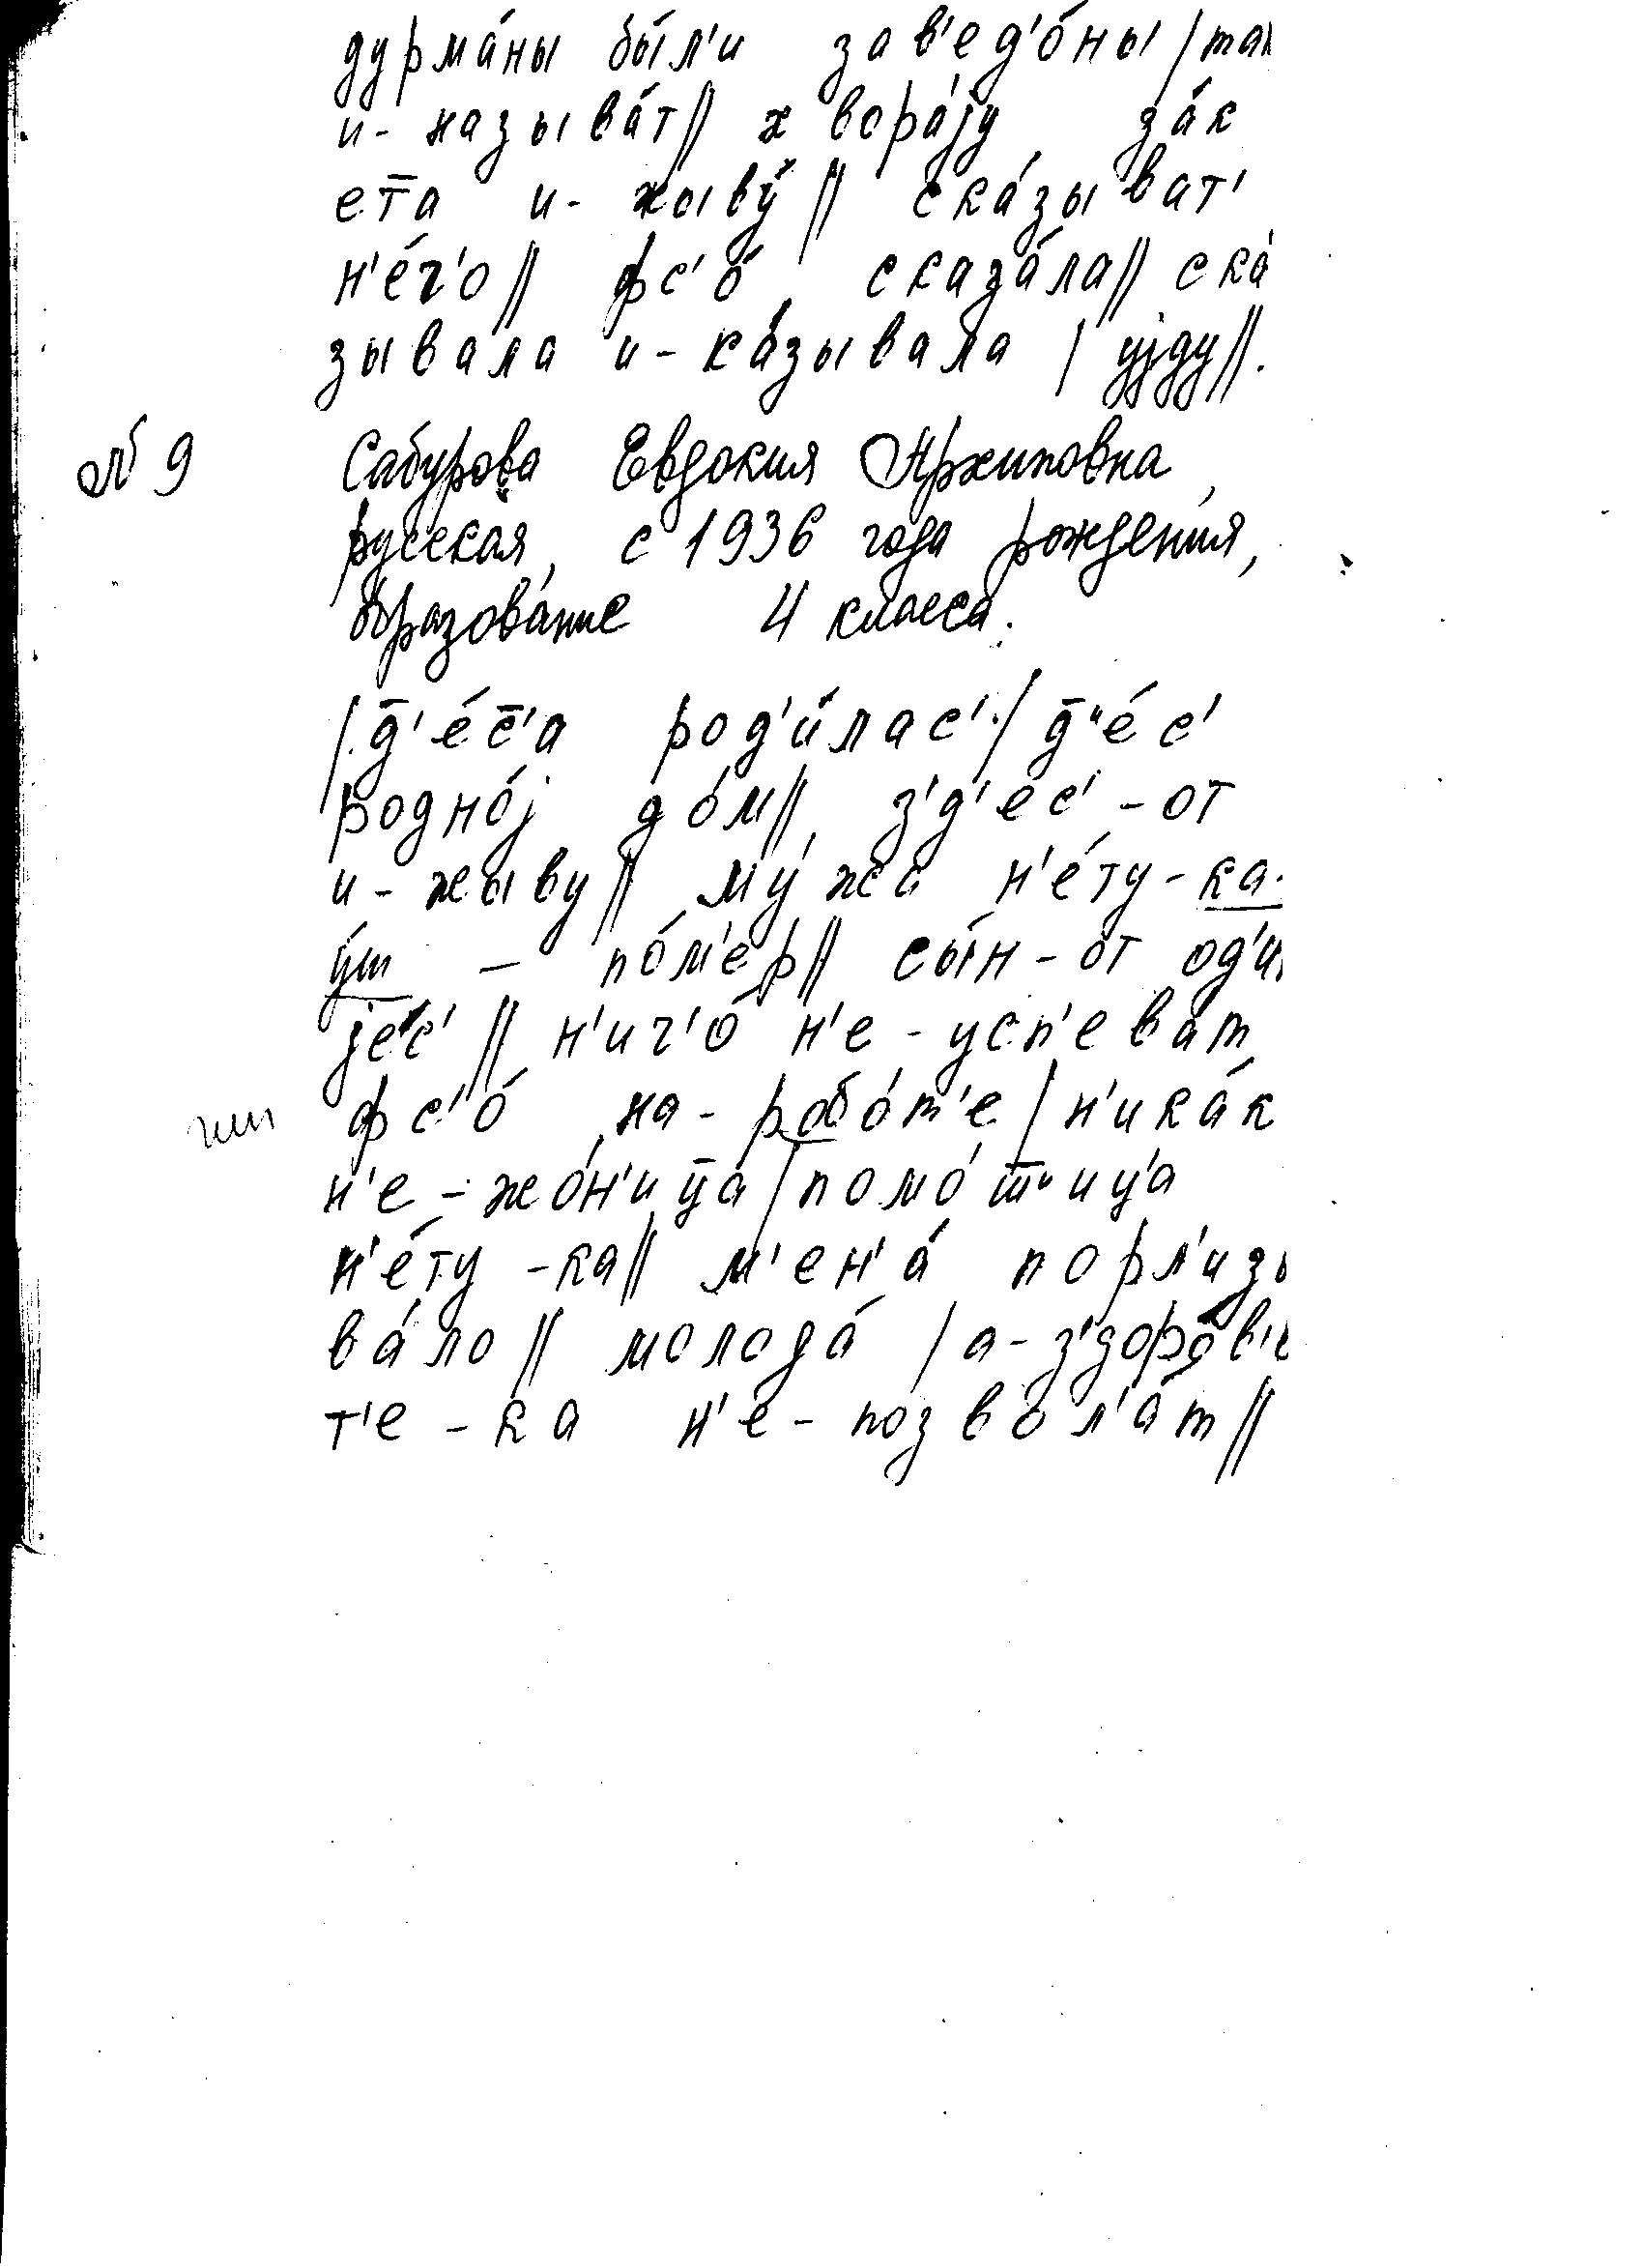 дурма́ны бы́л'и зав'ед'о́ны / так
и- называ́т // хвора́jу за́к
ет̄а и- жыву́ // ска́зыват'
н'е́ч'о // фс'о́ сказа́ла // ска́
зывала и- ка́зывала / уjду //.
№ 9 Сабурова Евдокия Архиповна,
русская, с 1936 года рождения,
образование 4 класса.
/ д̄'е́с̄'а род'и́лас' / д̄'е́с'
родно́j до́м // з'д'ес' - от
и - жыву // му́жа н'е́ту - ка-
у́ш – по́м'ер // сы́н - от од'и
jес' // н'ич'о́ н'е - усп'еват
фс'о́ на - робо́т'е / н'ика́к
н'е - жо́н'иц̄а / помо́ш̄'ица
н'е́ту - ка // м'ен'а́ порл'изо
ва́ло // молода́ / а- з'доро́в'и
т'е - ка н'е - позвол'а́т //